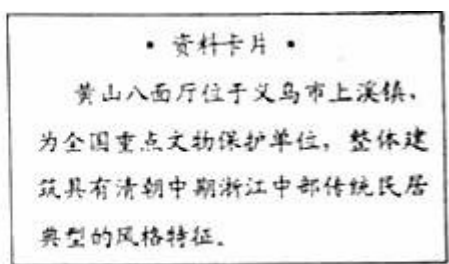 • 资料卡片 •
黄山八面厅位于义乌市上溪镇，
为全国重点文物保护单位，整体建
筑具有清朝中期浙江中部传统民居
典型的风格特征。